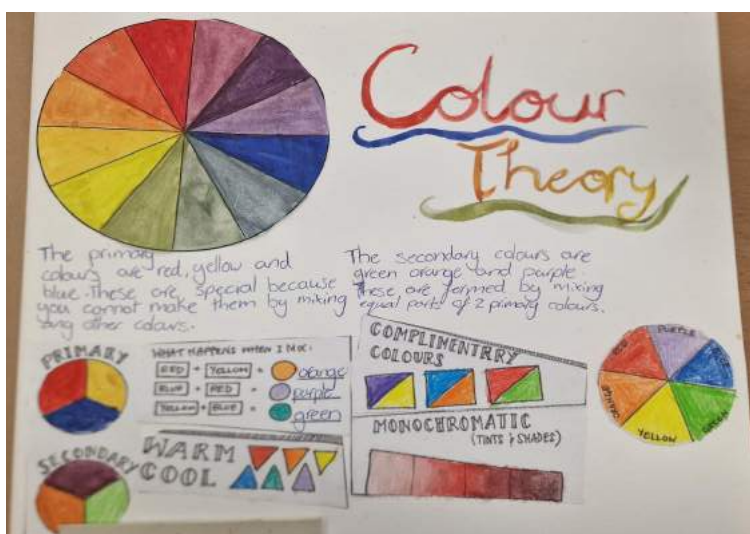 Colour
Theory
The primary
colours are red, yellow and
blue. These are special because
you cannot make them by mixing
any other colours.
The secondary colours are
green orange and purple.
These are formed by mixing
equal parts of 2 primary colours.
PRIMARY
WHAT HAPPENS WHEN I MIX:
RED + YELLOW = orange
BLUE + RED = purple
YELLOW + BLUE = green
SECONDARY
WARM
COOL
COMPLIMENTRRY
COLOURS
MONOCHROMATIC
(TINTS & SHADES)
RED
PURPLE
BLUE
GREEN
YELLOW
ORANGE